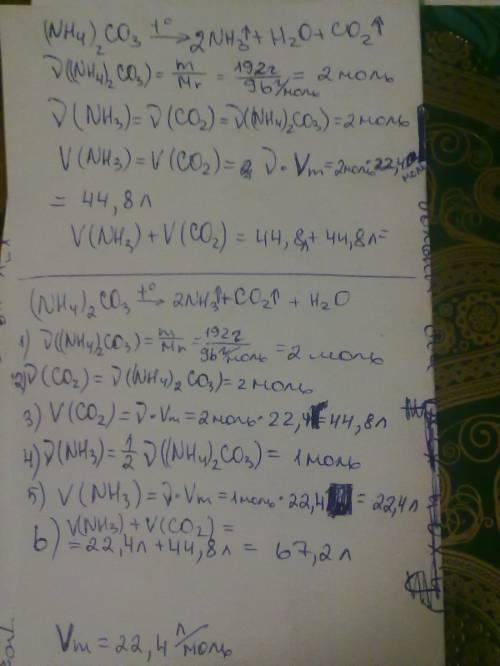 (NH4)2CO3 t°→ 2NH3↑ + H2O + CO2↑
ν((NH4)2CO3) = m/Mr = 192г/96г/моль = 2 моль
ν(NH3) = ν(CO2) = ν((NH4)2CO3) = 2 моль
V(NH3) = V(CO2) = ν · Vm = 2моль · 22,4
= 44,8л
V(NH3) + V(CO2) = 44,8л + 44,8л =
(NH4)2CO3 t°→ 2NH3↑ + CO2↑ + H2O
1) ν((NH4)2CO3) = m/Mr = 192г/96г/моль = 2 моль
2) ν(CO2) = ν((NH4)2CO3) = 2 моль
3) V(CO2) = ν · Vm = 2моль · 22,4 = 44,8л
4) ν(NH3) = 1/2 ν((NH4)2CO3) = 1 моль
5) V(NH3) = ν · Vm = 1моль · 22,4 = 22,4л
6) V(NH3) + V(CO2) =
= 22,4л + 44,8л = 67,2л
Vm = 22,4 л/моль